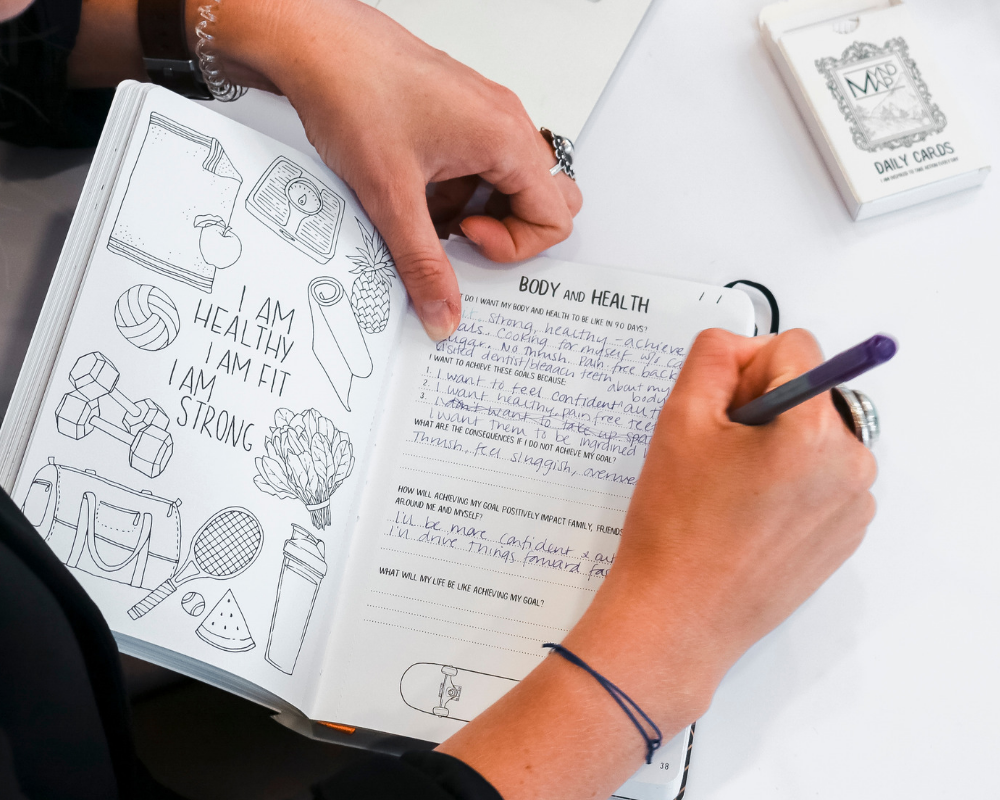 I AM
HEALTHY
I AM FIT
I AM
STRONG
BODY AND HEALTH
DO I WANT MY BODY AND HEALTH TO BE LIKE IN 90 DAYS?
strong, healthy - achieve
Cooking for myself w/o
sugar. No thrush. Pain free back
visited dentist/bleach teeth about my body
I WANT TO ACHIEVE THESE GOALS BECAUSE:
1. I want to feel confident
2. I want healthy, pain free
3. I don't want to take up
I want them to be ingrained
WHAT ARE THE CONSEQUENCES IF I DO NOT ACHIEVE MY GOAL?
Thrush, feel sluggish,
HOW WILL ACHIEVING MY GOAL POSITIVELY IMPACT FAMILY, FRIENDS
AROUND ME AND MYSELF?
I'll be more confident &
I'll drive things forward
WHAT WILL MY LIFE BE LIKE ACHIEVING MY GOAL?
38
DAILY CARDS